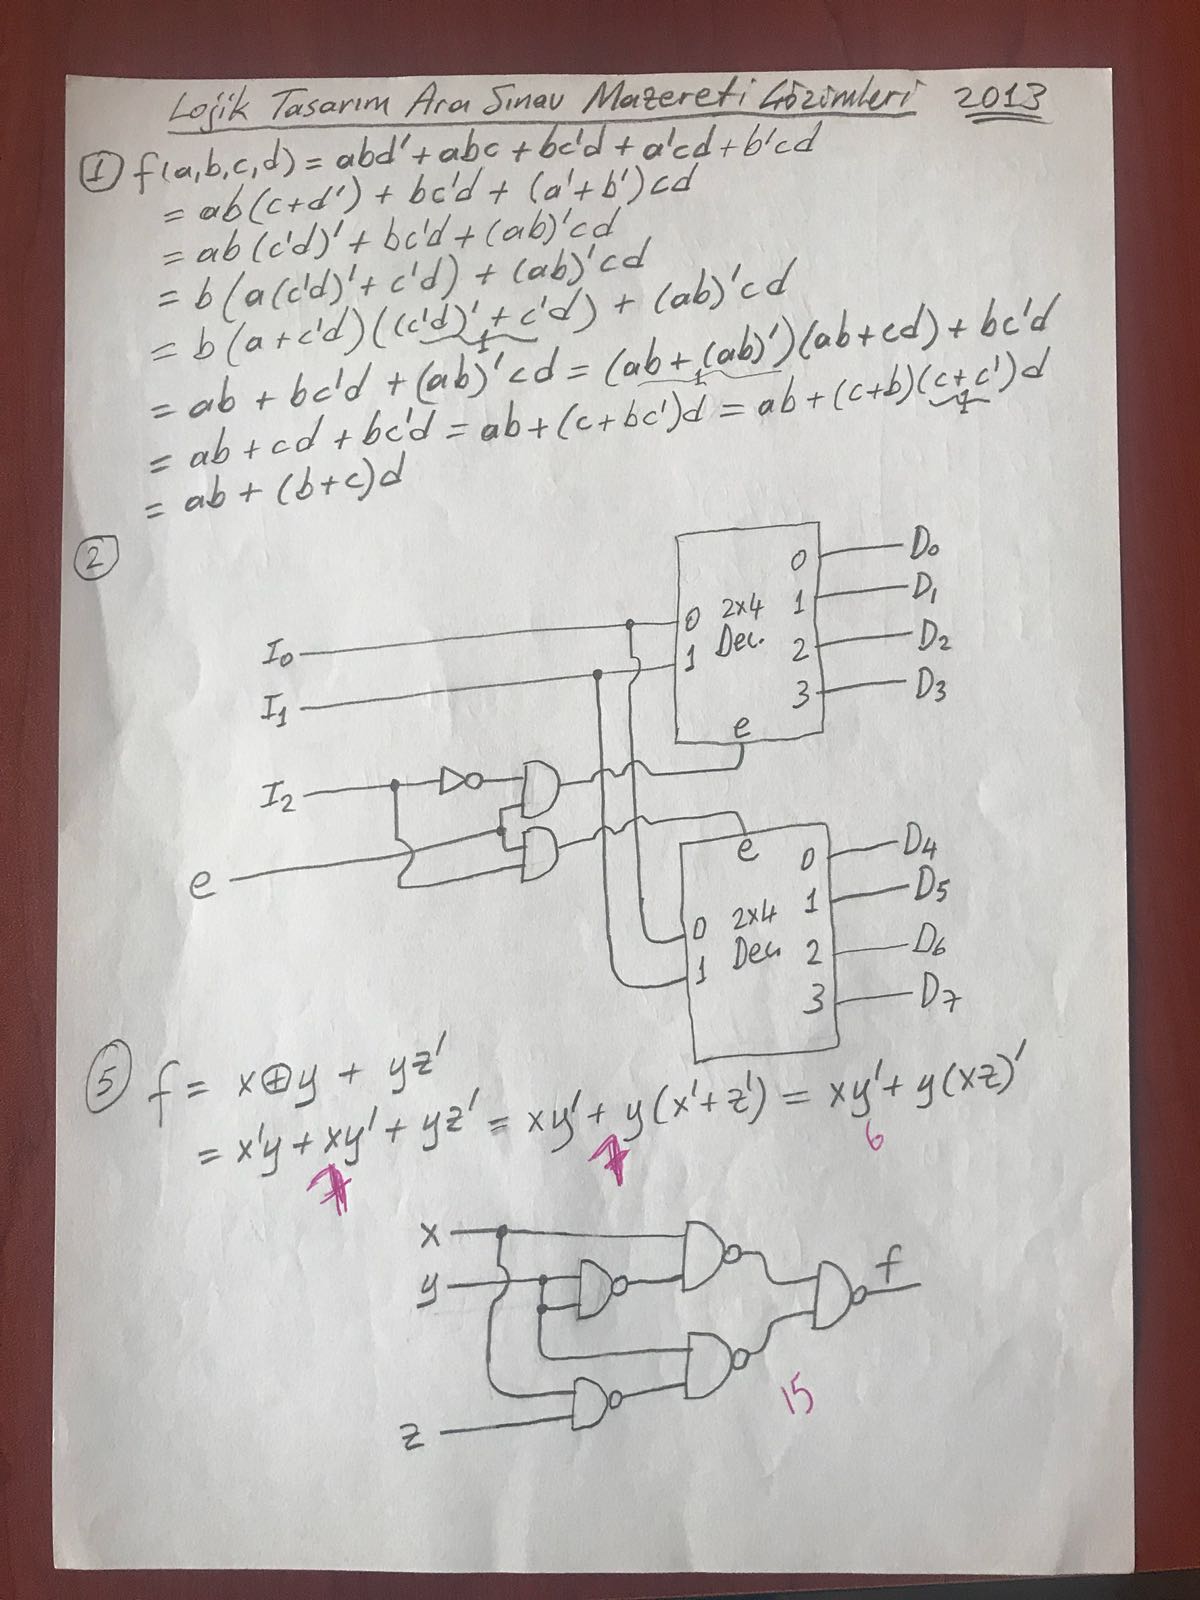 Lojik Tasarım Ara Sınav Mazereti Çözümleri 2013
1 f(a,b,c,d) = abd' + abc + bc'd + a'cd + b'cd
= ab(c+d') + bc'd + (a'+b')cd
= ab(c'd)' + bc'd + (ab)'cd
= b(a(c'd)' + c'd) + (ab)'cd
= b(a+c'd)((c'd)' + c'd) + (ab)'cd
1
= ab + bc'd + (ab)'cd = (ab + (ab)')(ab+cd) + bc'd
1
= ab + cd + bc'd = ab + (c+bc')d = ab + (c+b)(c+c')d
1
= ab + (b+c)d
2
I0
I1
I2
e
0
1
2x4
Dec.
0
1
2
3
e
D0
D1
D2
D3
e
0
1
2x4
Dec.
0
1
2
3
D4
D5
D6
D7
5 f = x⊕y + yz'
= x'y + xy' + yz' = xy' + y(x'+z') = xy' + y(xz)'
6
x
y
z
f
15